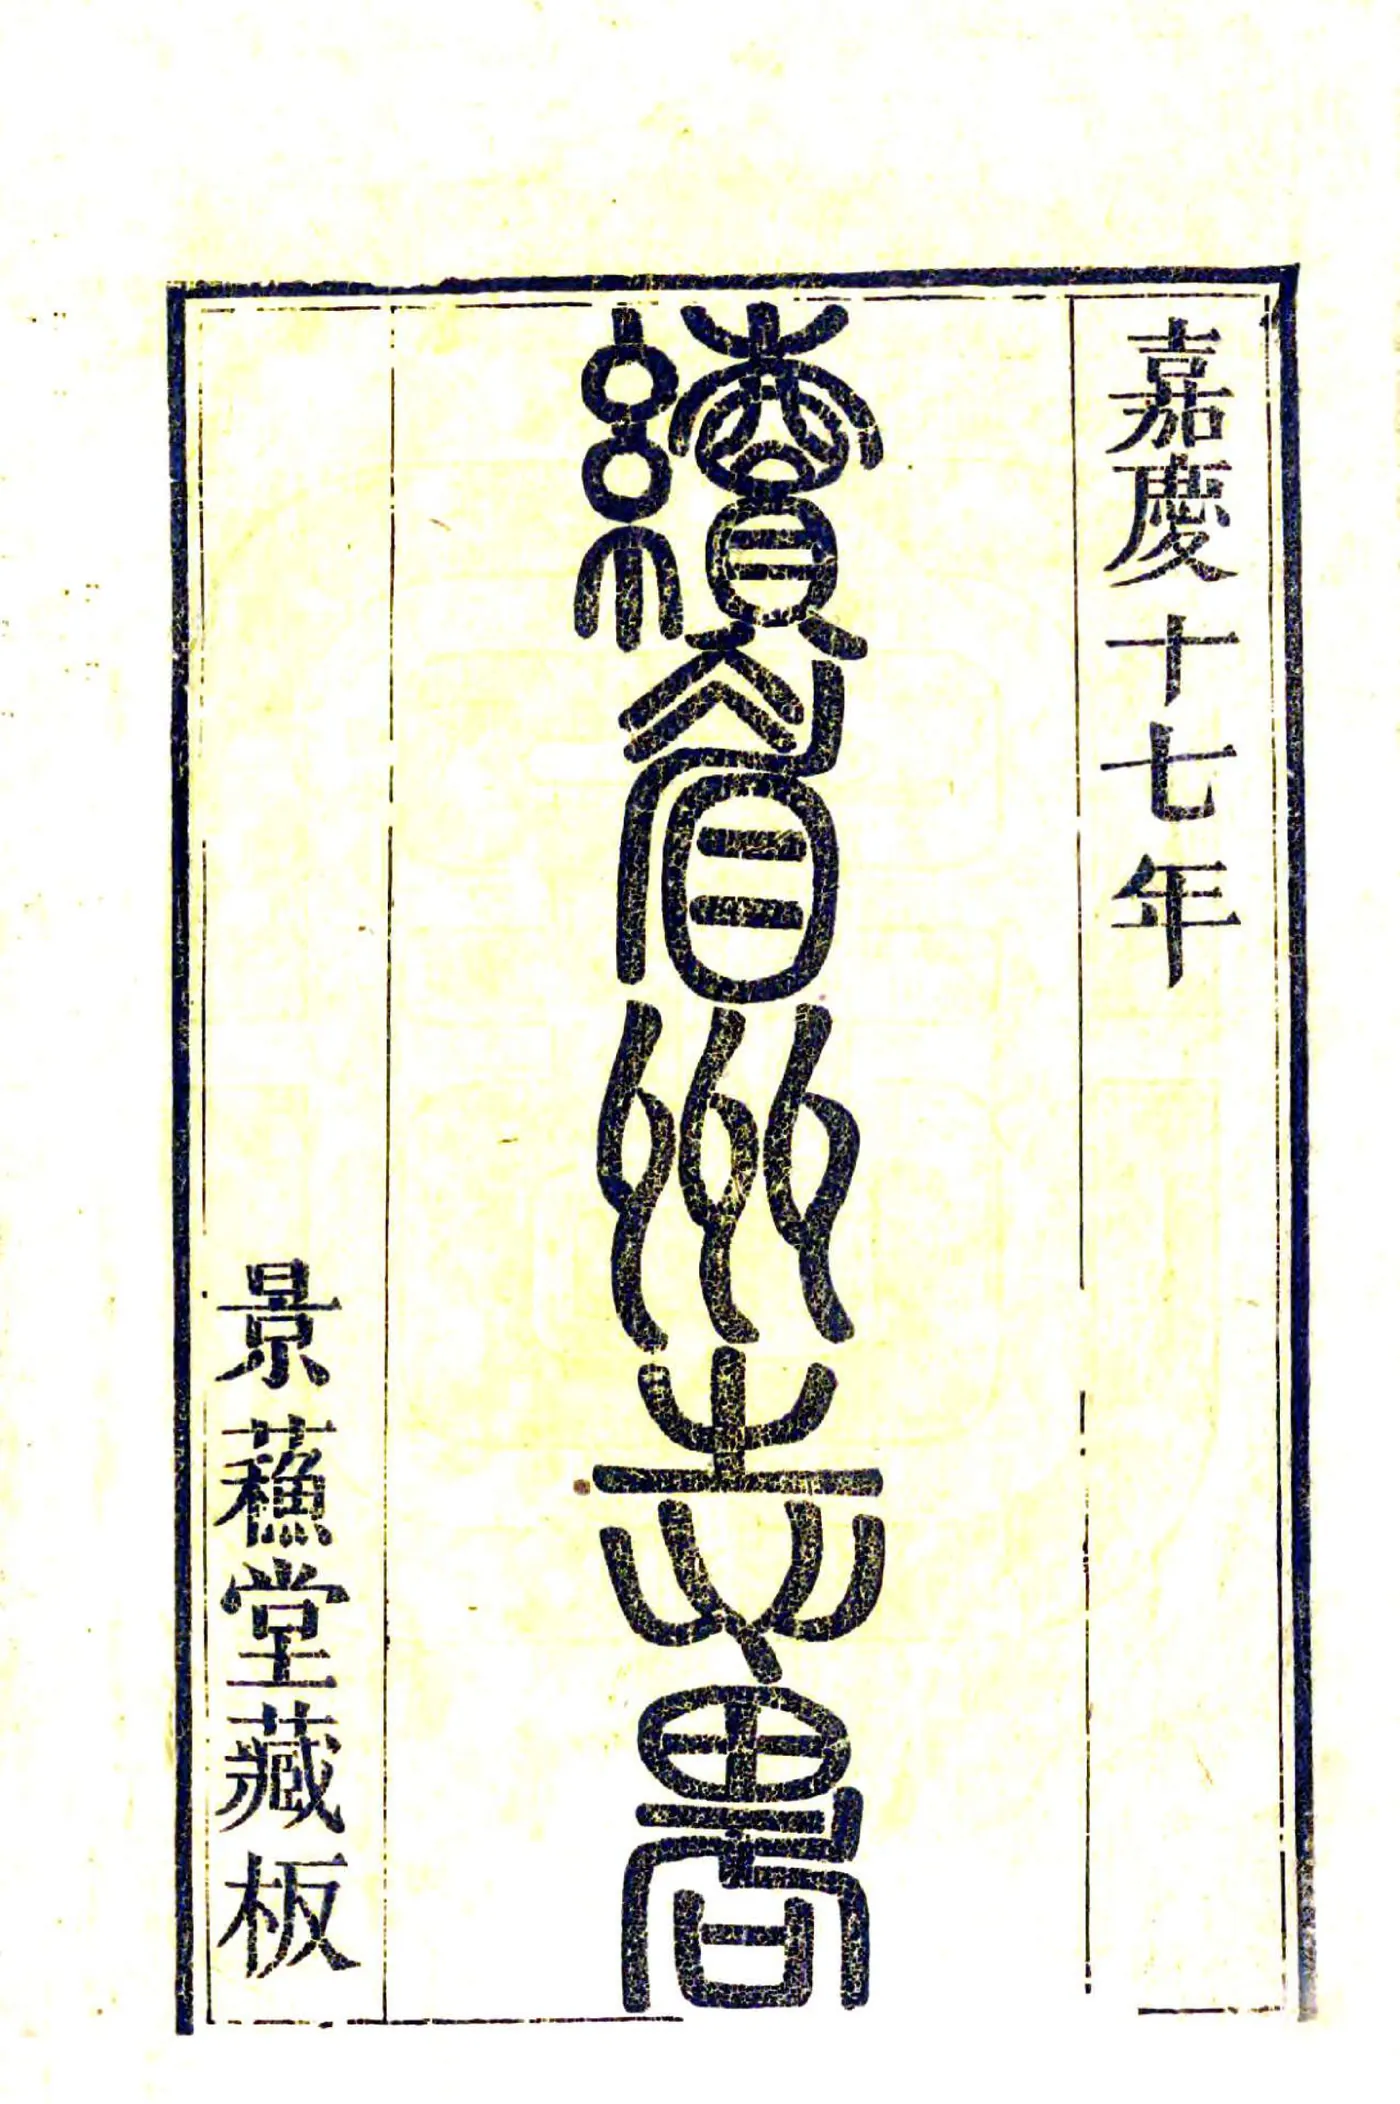 嘉慶十七年
續眉州志畧
景蘓堂藏板